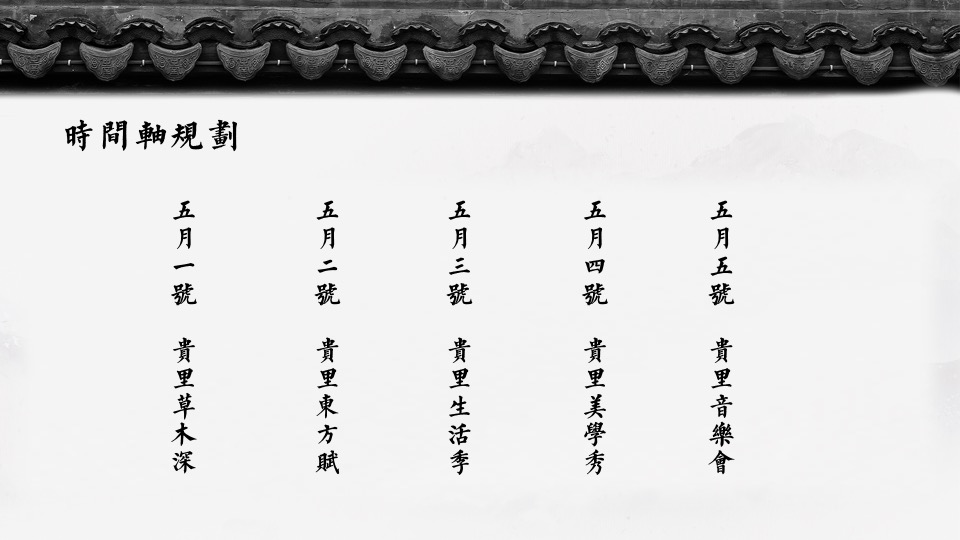 時間軸規劃
五月一號 貴里草木深
五月二號 貴里東方賦
五月三號 貴里生活季
五月四號 貴里美學秀
五月五號 貴里音樂會